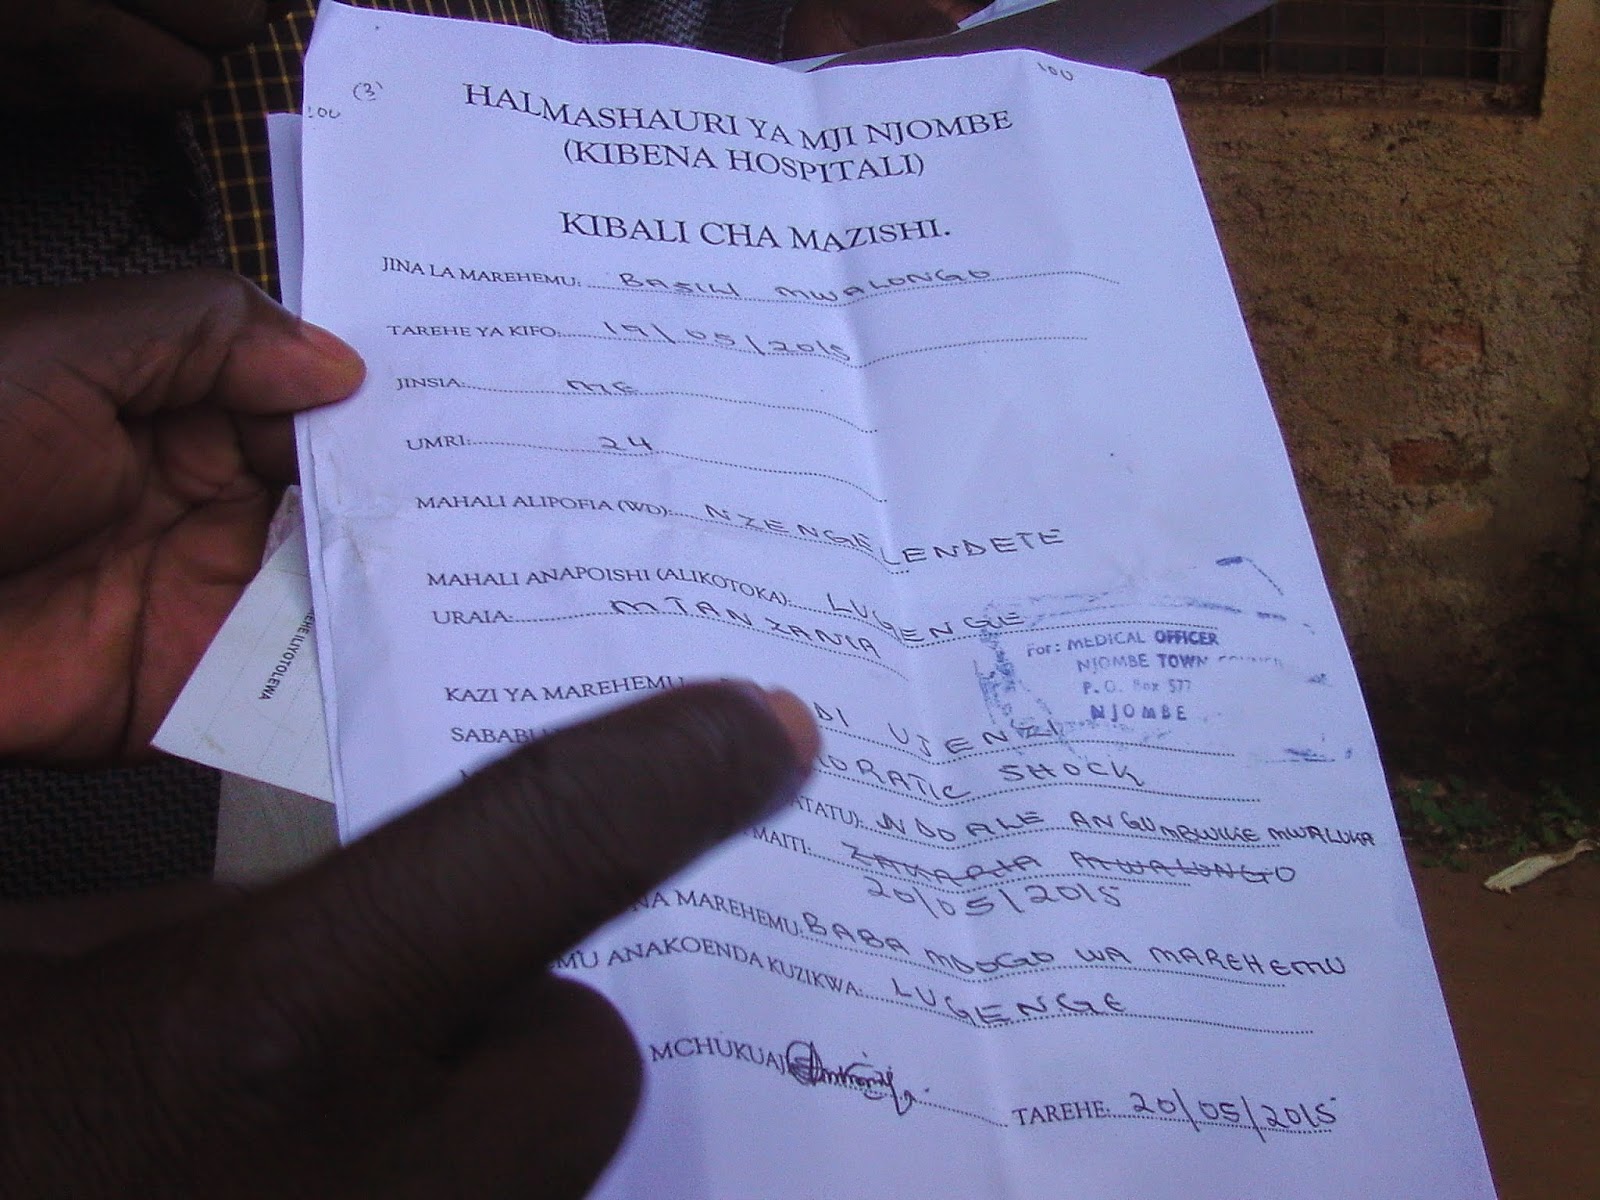 (3)
100
100
HALMASHAURI YA MJI NJOMBE
(KIBENA HOSPITALI)
KIBALI CHA MAZISHI.
JINA LA MAREHEMU: BASILI MWALONGO
TAREHE YA KIFO: 19/05/2015
JINSIA: ME
UMRI: 24
MAHALI ALIPOFIA (WD): NZENGELENDETE
MAHALI ANAPOISHI (ALIKOTOKA): LUGENGE
URAIA: MTANZANIA
For: MEDICAL OFFICER
NJOMBE TOWN COUNCIL
P.O. Box 577
NJOMBE
KAZI YA MAREHEMU DI UJENZI
SHOCK
ATATU): NDOALE ANGUMBWIKE MWALUKA
MAITI: ZAKARIA MWALONGO
20/05/2015
NA MAREHEMU: BABA MDOGO WA MAREHEMU
MU ANAKOENDA KUZIKWA: LUGENGE
MCHUKUAJI
TAREHE: 20/05/2015
EHE ILIYOTOLEWA